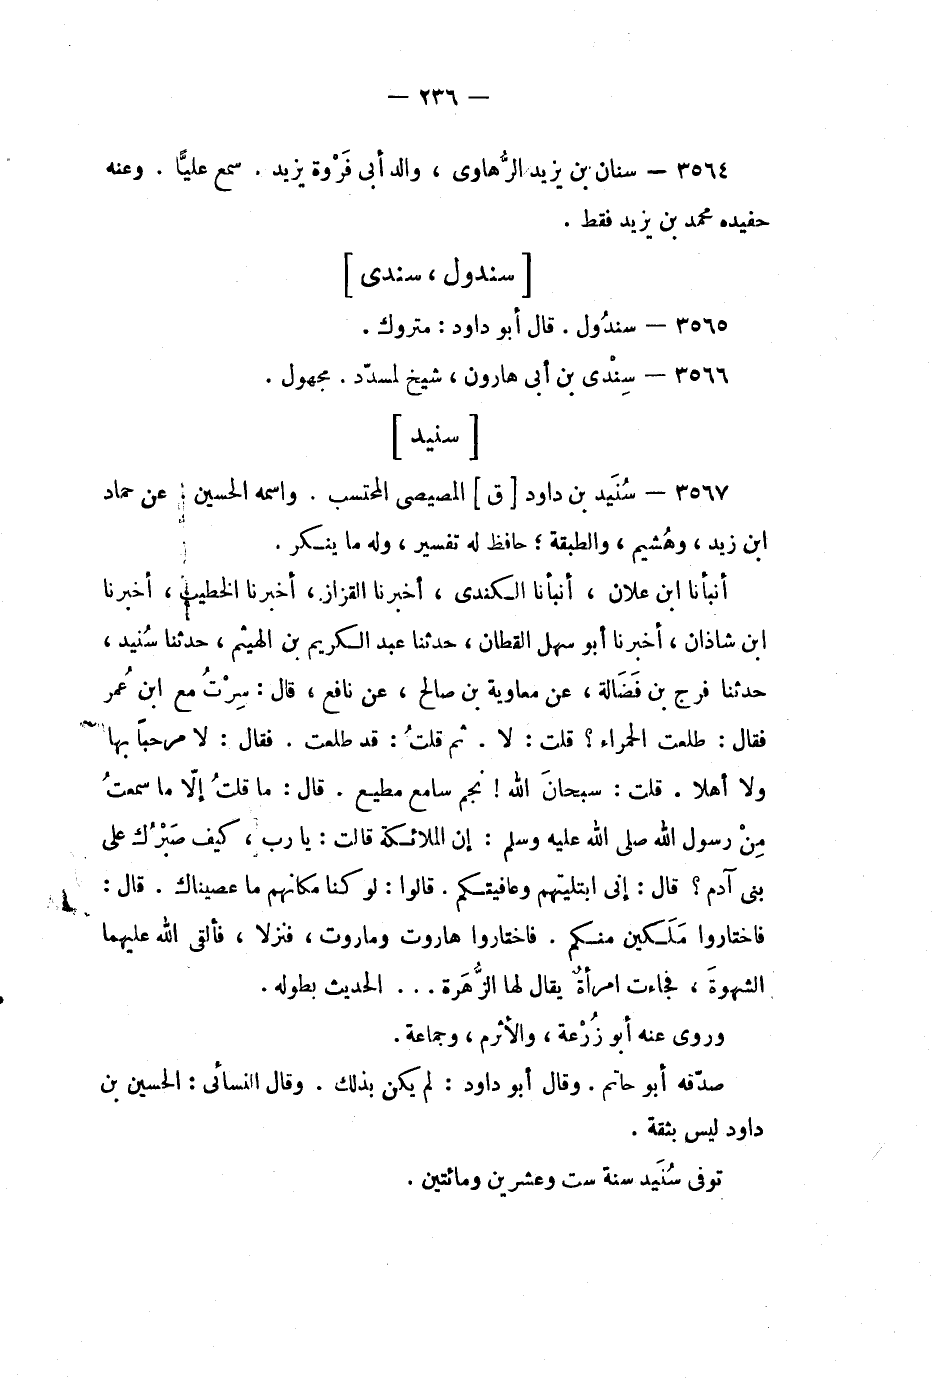 — ٢٣٦ —
٣٥٦٤ — سنان بن يزيد الرُّهاوى ، والد أبى فَرْوة يزيد . سمع عليًّا . وعنه
حفيده محمد بن يزيد فقط .
[ سندول ، سندى ]
٣٥٦٥ — سندُول . قال أبو داود : متروك .
٣٥٦٦ — سِنْدى بن أبى هارون ، شيخ لمسدّد . مجهول .
[ سنيد ]
٣٥٦٧ — سُنَيد بن داود [ ق ] المصيصى المحتسب . واسمه الحسين ؛ عن حماد
ابن زيد ، وهُشيم ، والطبقة ؛ حافظ له تفسير ، وله ما ينكر .
أنبأنا ابن علان ، أنبأنا الكندى ، أخبرنا القزاز ، أخبرنا الخطيب ، أخبرنا
ابن شاذان ، أخبرنا أبو سهل القطان ، حدثنا عبد الكريم بن الهيثم ، حدثنا سُنيد ،
حدثنا فرج بن فَضَالة ، عن معاوية بن صالح ، عن نافع ، قال : سِرْتُ مع ابن عُمر
فقال : طلعت الحمراء ؟ قلت : لا . ثم قلتُ : قد طلعت . فقال : لا مرحبًا بها
ولا أهلا . قلت : سبحانَ الله ! نجم سامع مطيع . قال : ما قلتُ إلّا ما سمعتُ
مِنْ رسول الله صلى الله عليه وسلم : إن الملائكة قالت : يا رب ، كيف صَبْرُك على
بنى آدم ؟ قال : إنى ابتليتهم وعافيتكم . قالوا : لو كنا مكانهم ما عصيناك . قال :
فاختاروا مَلَكين منكم . فاختاروا هاروت وماروت ، فنزلا ، فألقى الله عليهما
الشهوةَ ، فجاءت امرأةٌ يقال لها الزُّهَرة . . . الحديث بطوله .
وروى عنه أبو زُرْعة ، والأثرم ، وجماعة .
صدّقه أبو حاتم . وقال أبو داود : لم يكن بذلك . وقال النسائى : الحسين بن
داود ليس بثقة .
توفى سُنَيد سنة ست وعشرين ومائتين .